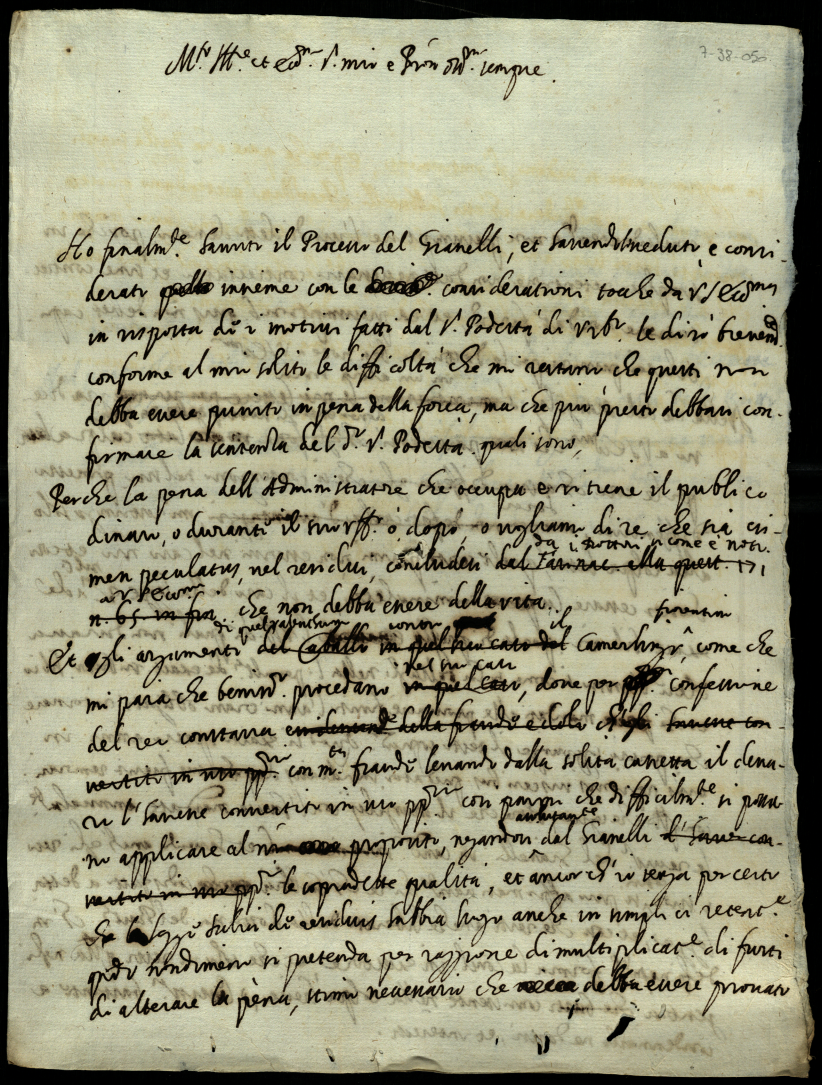 7-38-050
Mto. Illre. et Ecc. S. mio e Pron oss. sempre.
Ho finalmte. havuto il Processo del Gianelli, et havendolo veduto, e consi-
derato insieme con le considerationi tocche da VS Eccma
in risposta de i motivi fatti dal S. Podestà di Urb. le dirò brevemte.
conforme al mio solito le difficoltà che mi restano che questi non
debba essere punito in pena della forca, ma che più presto debbasi con-
firmare la sentenza del d. S. Podestà quali sono,
Perche la pena dell Administratore che occupa e ritiene il publico
dinaro, o durante il suo uff. ò dopò, o vogliamo dire che sia cri-
da i Dottori si come è noto
men peculatus, nel residui, concludesi dal Farinac. alla quest. 171
a VS Eccma
n. 65 in fra. che non debba essere della vita.
di quel valenthuomo contro il fiorentini
Et gli argumenti del Caballo in quel suo caso del Camerlingo, come che
nel suo caso
mi paia che beniss. procedano in quel caso, dove per confessione
del reo constava evidentemte della fraude e dolo havesse con-
vertito in uso pp. con m.ta fraude levando dalla solita cassetta il dena-
ro l'havesse convertito in uso pp. così parmi che difficilmte. si posso-
no applicare al proposito, negandosi dal Gianelli l'haver con-
vertito in uso pp. le sopradette qualità, et ancor ch'io tenga per certo
che la legge Iulia de residuis habbia luogo anche in simplici retent.e
quando nondimeno si pretenda per raggione di multiplicat.e di furti
di alterare la pena, stimo necessario che debba essere provato